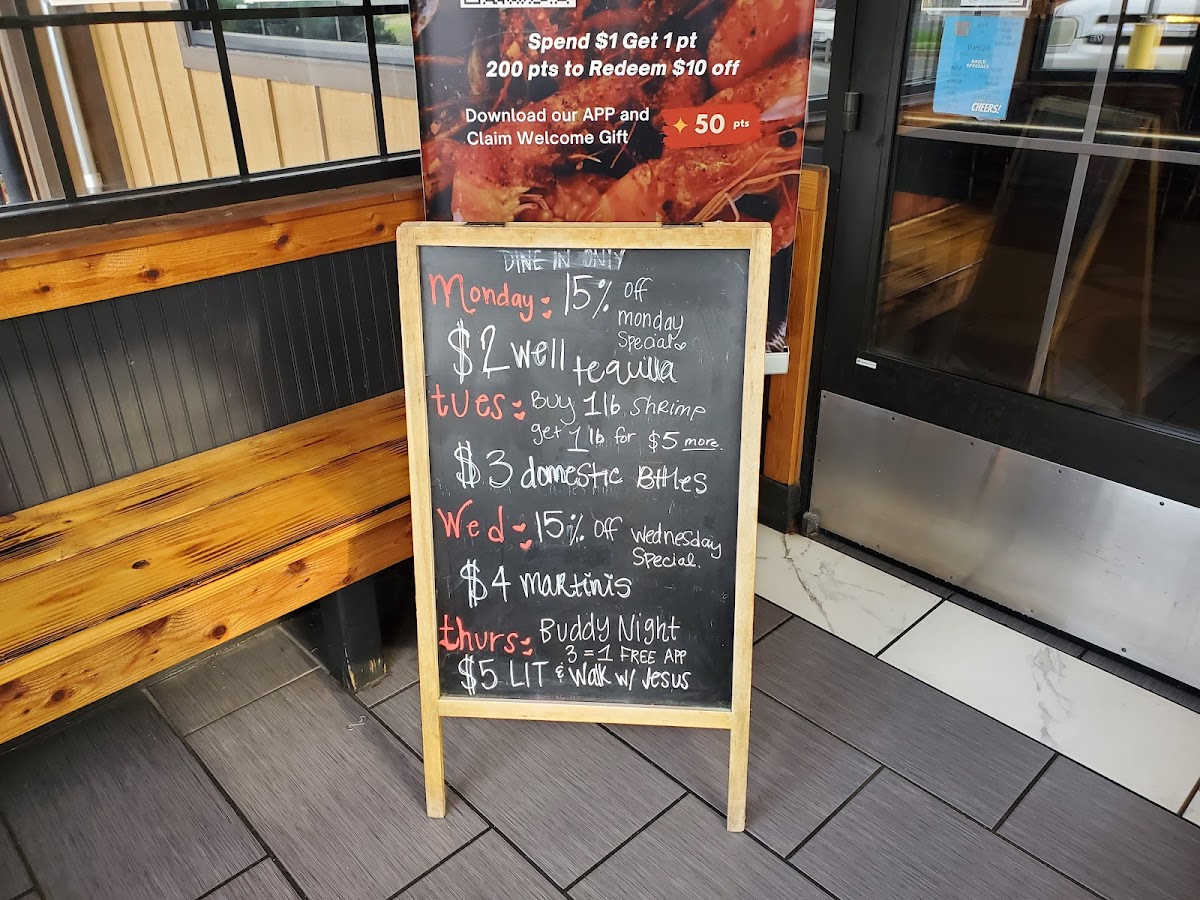 Spend $1 Get 1 pt
200 pts to Redeem $10 off
Download our APP and
Claim Welcome Gift
50 pts
DAILY
SPECIALS
CHEERS!
DINE IN ONLY
Monday: 15% off
monday
Special
$2 well tequila
tues: Buy 1lb Shrimp
get 1 lb for $5 more.
$3 domestic Bttles
Wed: 15% off wednesday
Special.
$4 martinis
thurs: Buddy Night
3 = 1 FREE APP
$5 LIT & Walk w/ Jesus